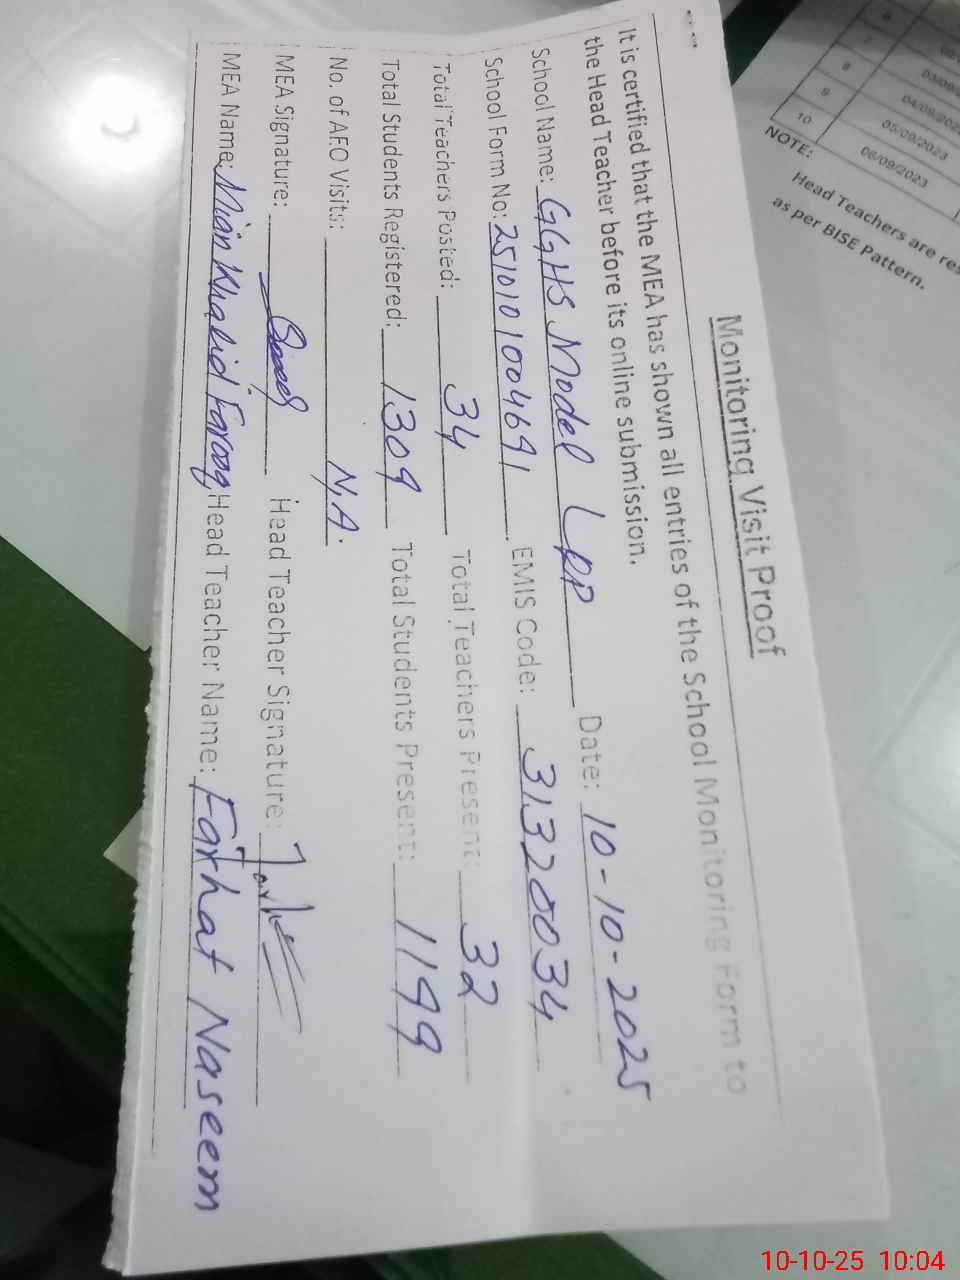 Monitoring Visit Proof
It is certified that the MEA has shown all entries of the School Monitoring Form to
the Head Teacher before its online submission.
School Name: GGHS Model LDP Date: 10-10-2025
School Form No: 2510101004691 EMIS Code: 31320034
Total Teachers Posted: 34 Total Teachers Present: 32
Total Students Registered: 1309 Total Students Present: 1199
No. of AEO Visits: N.A.
MEA Signature: Head Teacher Signature:
MEA Name: Mian Khalid Farooq Head Teacher Name: Farhat Naseem
7
8 03/09/
9 04/09/2023
10 05/09/2023
06/09/2023
NOTE:
Head Teachers are res
as per BISE Pattern.
10-10-25 10:04